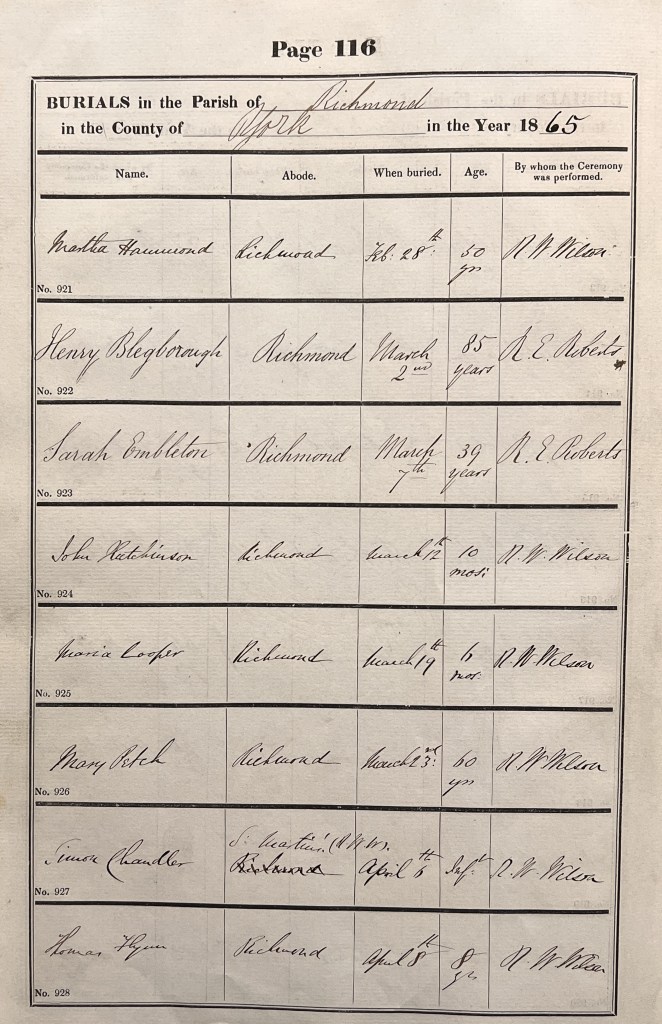 Page 116
BURIALS in the Parish of Richmond
in the County of York in the Year 1865
Name. Abode. When buried. Age. By whom the Ceremony was performed.
Martha Hammond Richmond Feb: 28th 50 yrs R W Wilson
No. 921
Henry Blegborough Richmond March 2nd 85 years R. E. Roberts
No. 922
Sarah Embleton Richmond March 7th 39 years R. E. Roberts
No. 923
John Hutchinson Richmond March 12th 10 mos: R. W. Wilson
No. 924
Maria Cooper Richmond March 19th 6 mos. R. W. Wilson
No. 925
Mary Petch Richmond March 23rd: 60 yrs R W Wilson
No. 926
St Martin's (R W W).
Simon Chandler Richmond April 6th Inft R. W. Wilson
No. 927
Thomas Flynn Richmond April 8th 8 yrs R W Wilson
No. 928